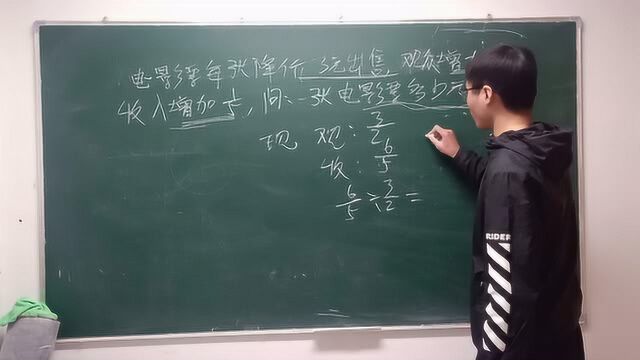 电影票每张降价3元出售,观众增加
收入增加1/5,问:一张电影票多少元
现 观:3/2
收:6/5
6/5÷3/2=
RIDER